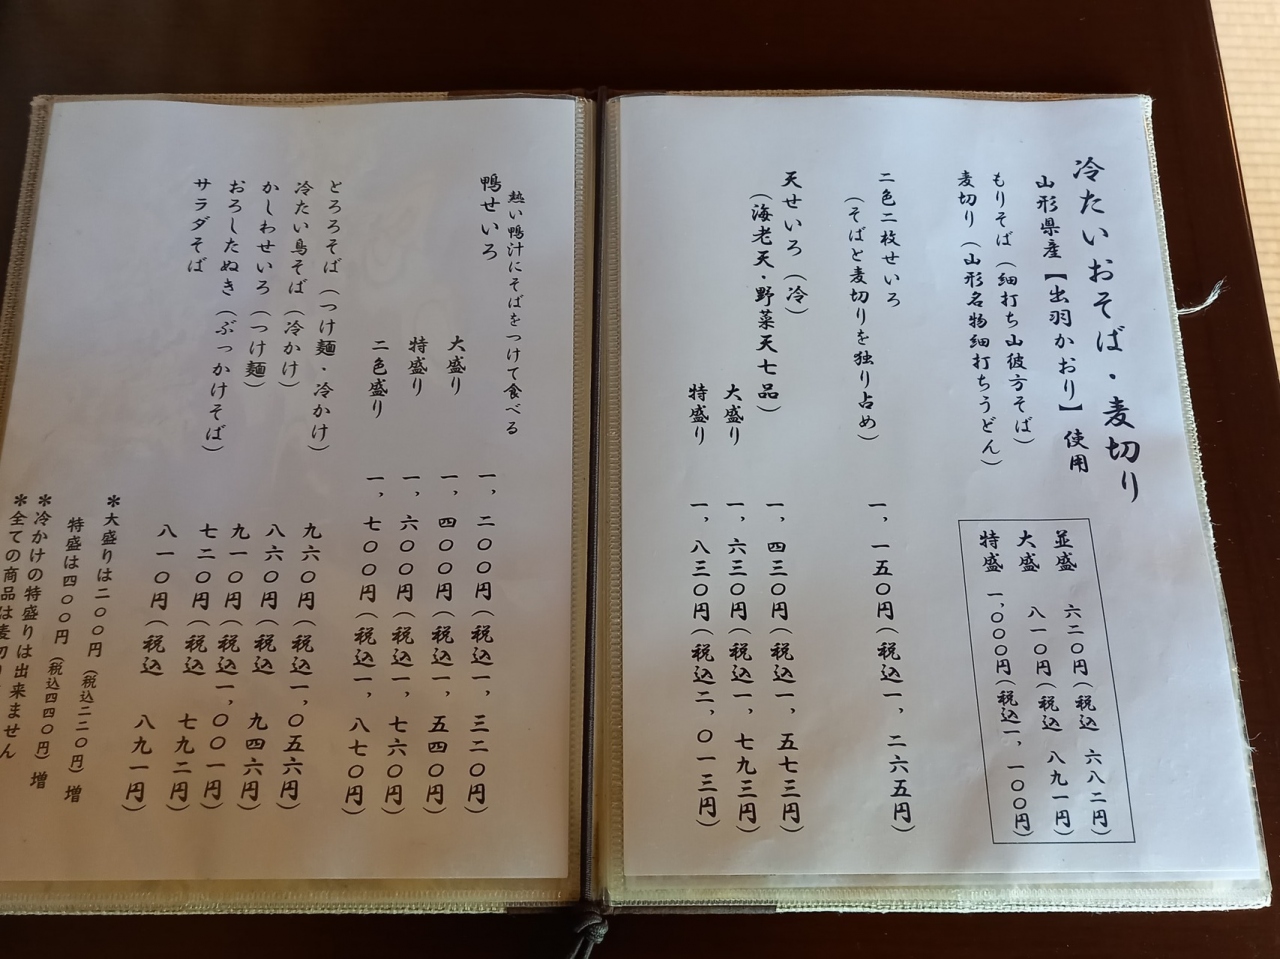 冷たいおそば・麦切り
山形県産【出羽かおり】使用
もりそば（細打ち山彼方そば）
麦切り（山形名物細打ちうどん）
並盛 六二〇円（税込 六八二円）
大盛 八一〇円（税込 八九一円）
特盛 一,〇〇〇円（税込一,一〇〇円）
二色二枚せいろ 一,一五〇円（税込一,二六五円）
（そばと麦切りを独り占め）
天せいろ（冷） 一,四三〇円（税込一,五七三円）
（海老天・野菜天七品）
大盛り 一,六三〇円（税込一,七九三円）
特盛り 一,八三〇円（税込二,〇一三円）
熱い鴨汁にそばをつけて食べる
鴨せいろ 一,二〇〇円（税込一,三二〇円）
大盛り 一,四〇〇円（税込一,五四〇円）
特盛り 一,六〇〇円（税込一,七六〇円）
二色盛り 一,七〇〇円（税込一,八七〇円）
とろろそば（つけ麺・冷かけ） 九六〇円（税込一,〇五六円）
冷たい鳥そば（冷かけ） 八六〇円（税込 九四六円）
かしわせいろ（つけ麺） 九一〇円（税込一,〇〇一円）
おろしたぬき（ぶっかけそば） 七二〇円（税込 七九二円）
サラダそば 八一〇円（税込 八九一円）
＊大盛りは二〇〇円（税込二二〇円）増
特盛は四〇〇円（税込四四〇円）増
＊冷かけの特盛りは出来ません
＊全ての商品は麦切